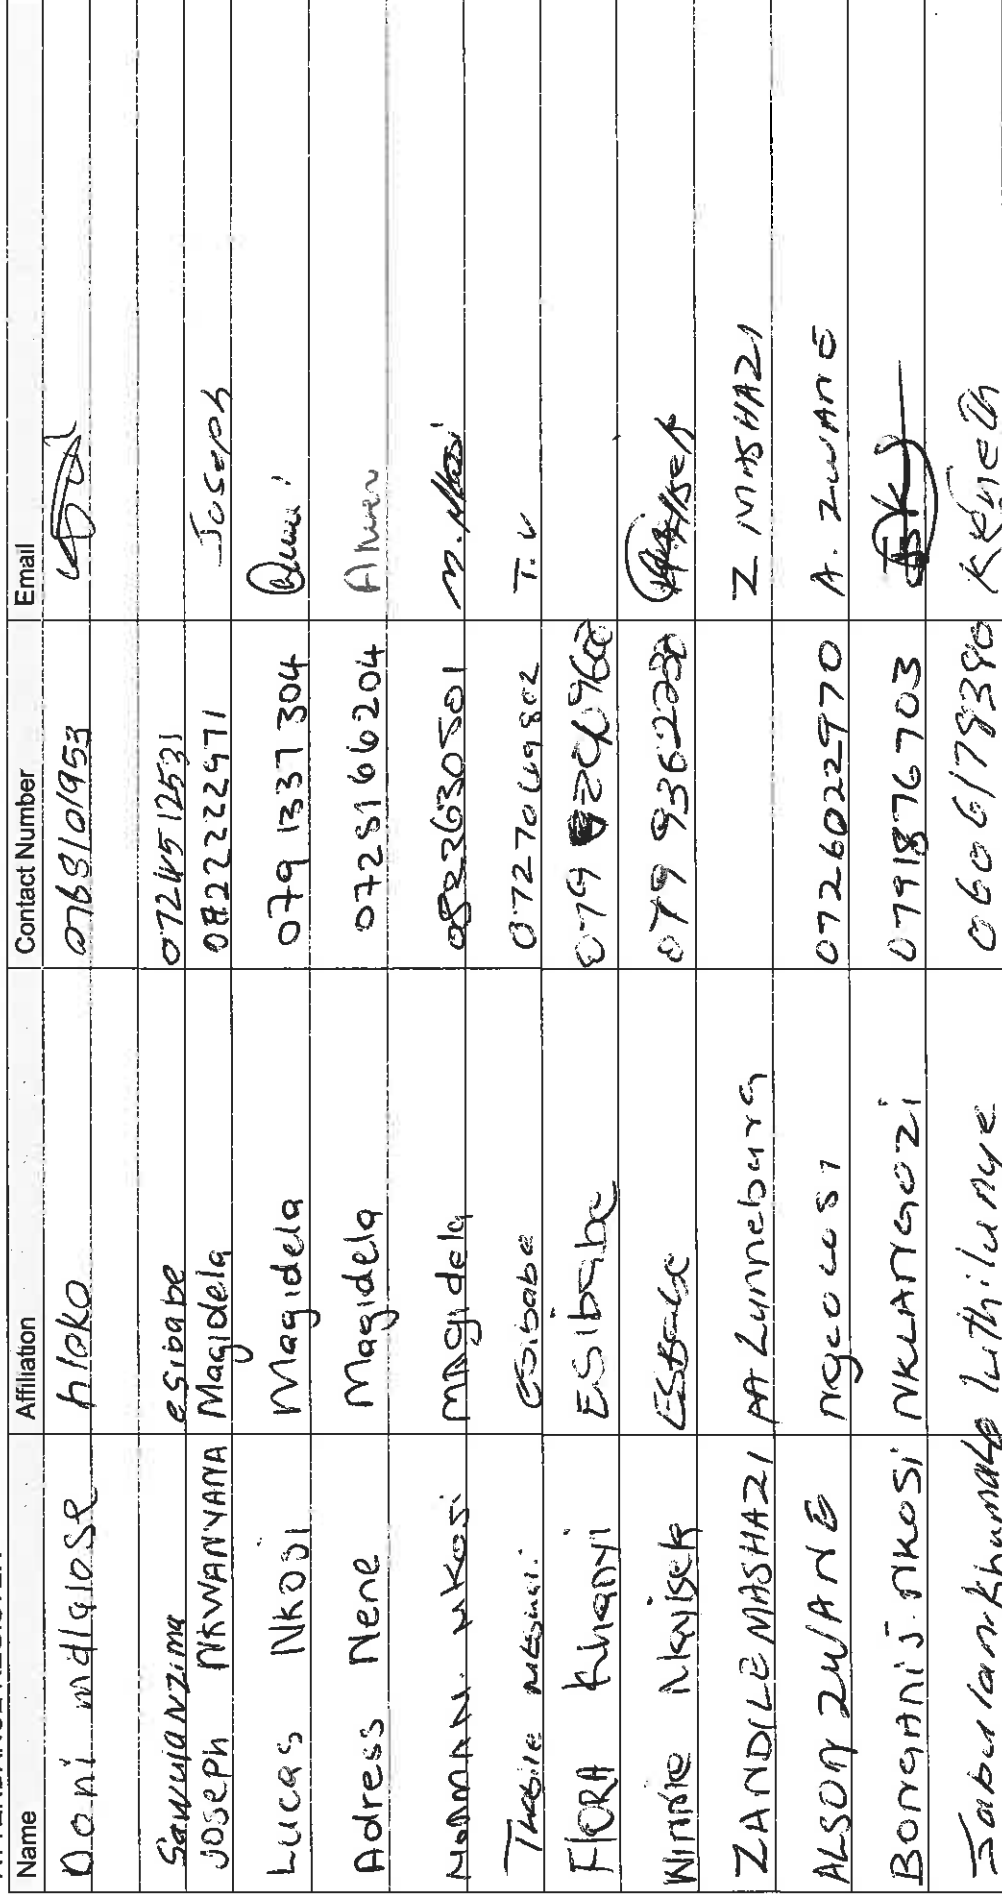 Name Affiliation Contact Number Email
Doni mdlalose hloko 0768101953
Sawulanzima esibabe 0724512531
JOSEPH NKWANYANA Magidela 0822222971 Joseph
Lucas Nkosi Magidela 079 1337 304
Adress Nene Magidela 0728166204
NORMAN. NKosi MAgidela 0822630501
Thabile esibabe 0727069802 T.V
FlORA Khanyi ESibabe 079
Winnie 079 9362230
ZANDILE MASHAZI PA Lunneburg Z MASHAZI
ALSON ZWANE ngcocosi 0726022970 A. ZWANE
Bonganis. NKOSI NKLANGOZI 0791876703
Jabulani Khumalo Luthilunye 0606178380 Keneth